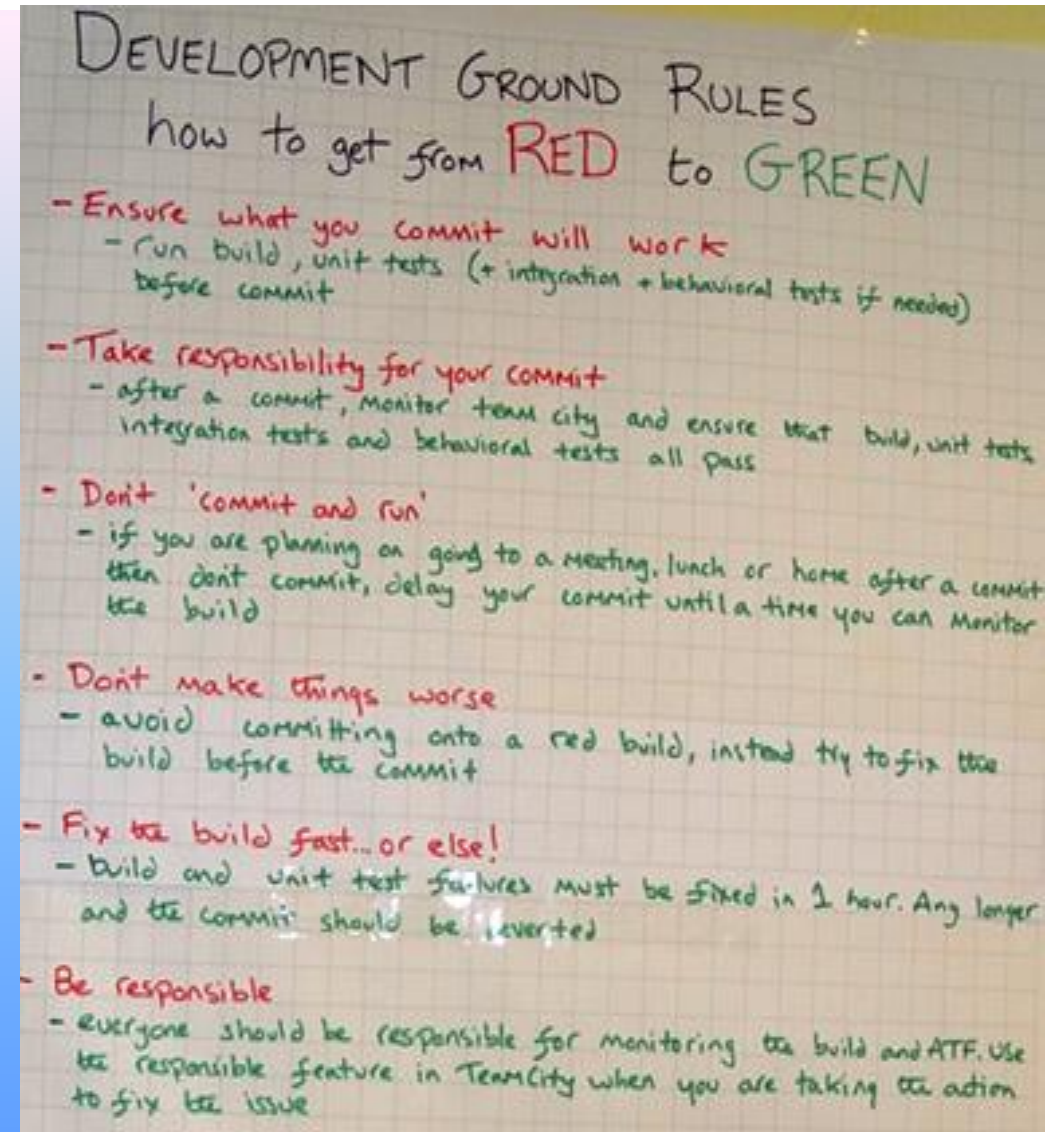 DEVELOPMENT GROUND RULES
how to get from RED to GREEN
- Ensure what you commit will work
- run build, unit tests (+ integration + behavioral tests if needed)
before commit
- Take responsibility for your commit
- after a commit, monitor team city and ensure that build, unit tests
integration tests and behavioral tests all pass
- Don't 'commit and run'
- if you are planning on going to a meeting, lunch or home after a commit
then don't commit, delay your commit until a time you can monitor
the build
- Don't make things worse
- avoid committing onto a red build, instead try to fix the
build before the commit
- Fix the build fast... or else!
- build and unit test failures must be fixed in 1 hour. Any longer
and the commit should be reverted
- Be responsible
- everyone should be responsible for monitoring the build and ATF. Use
the responsible feature in TeamCity when you are taking the action
to fix the issue